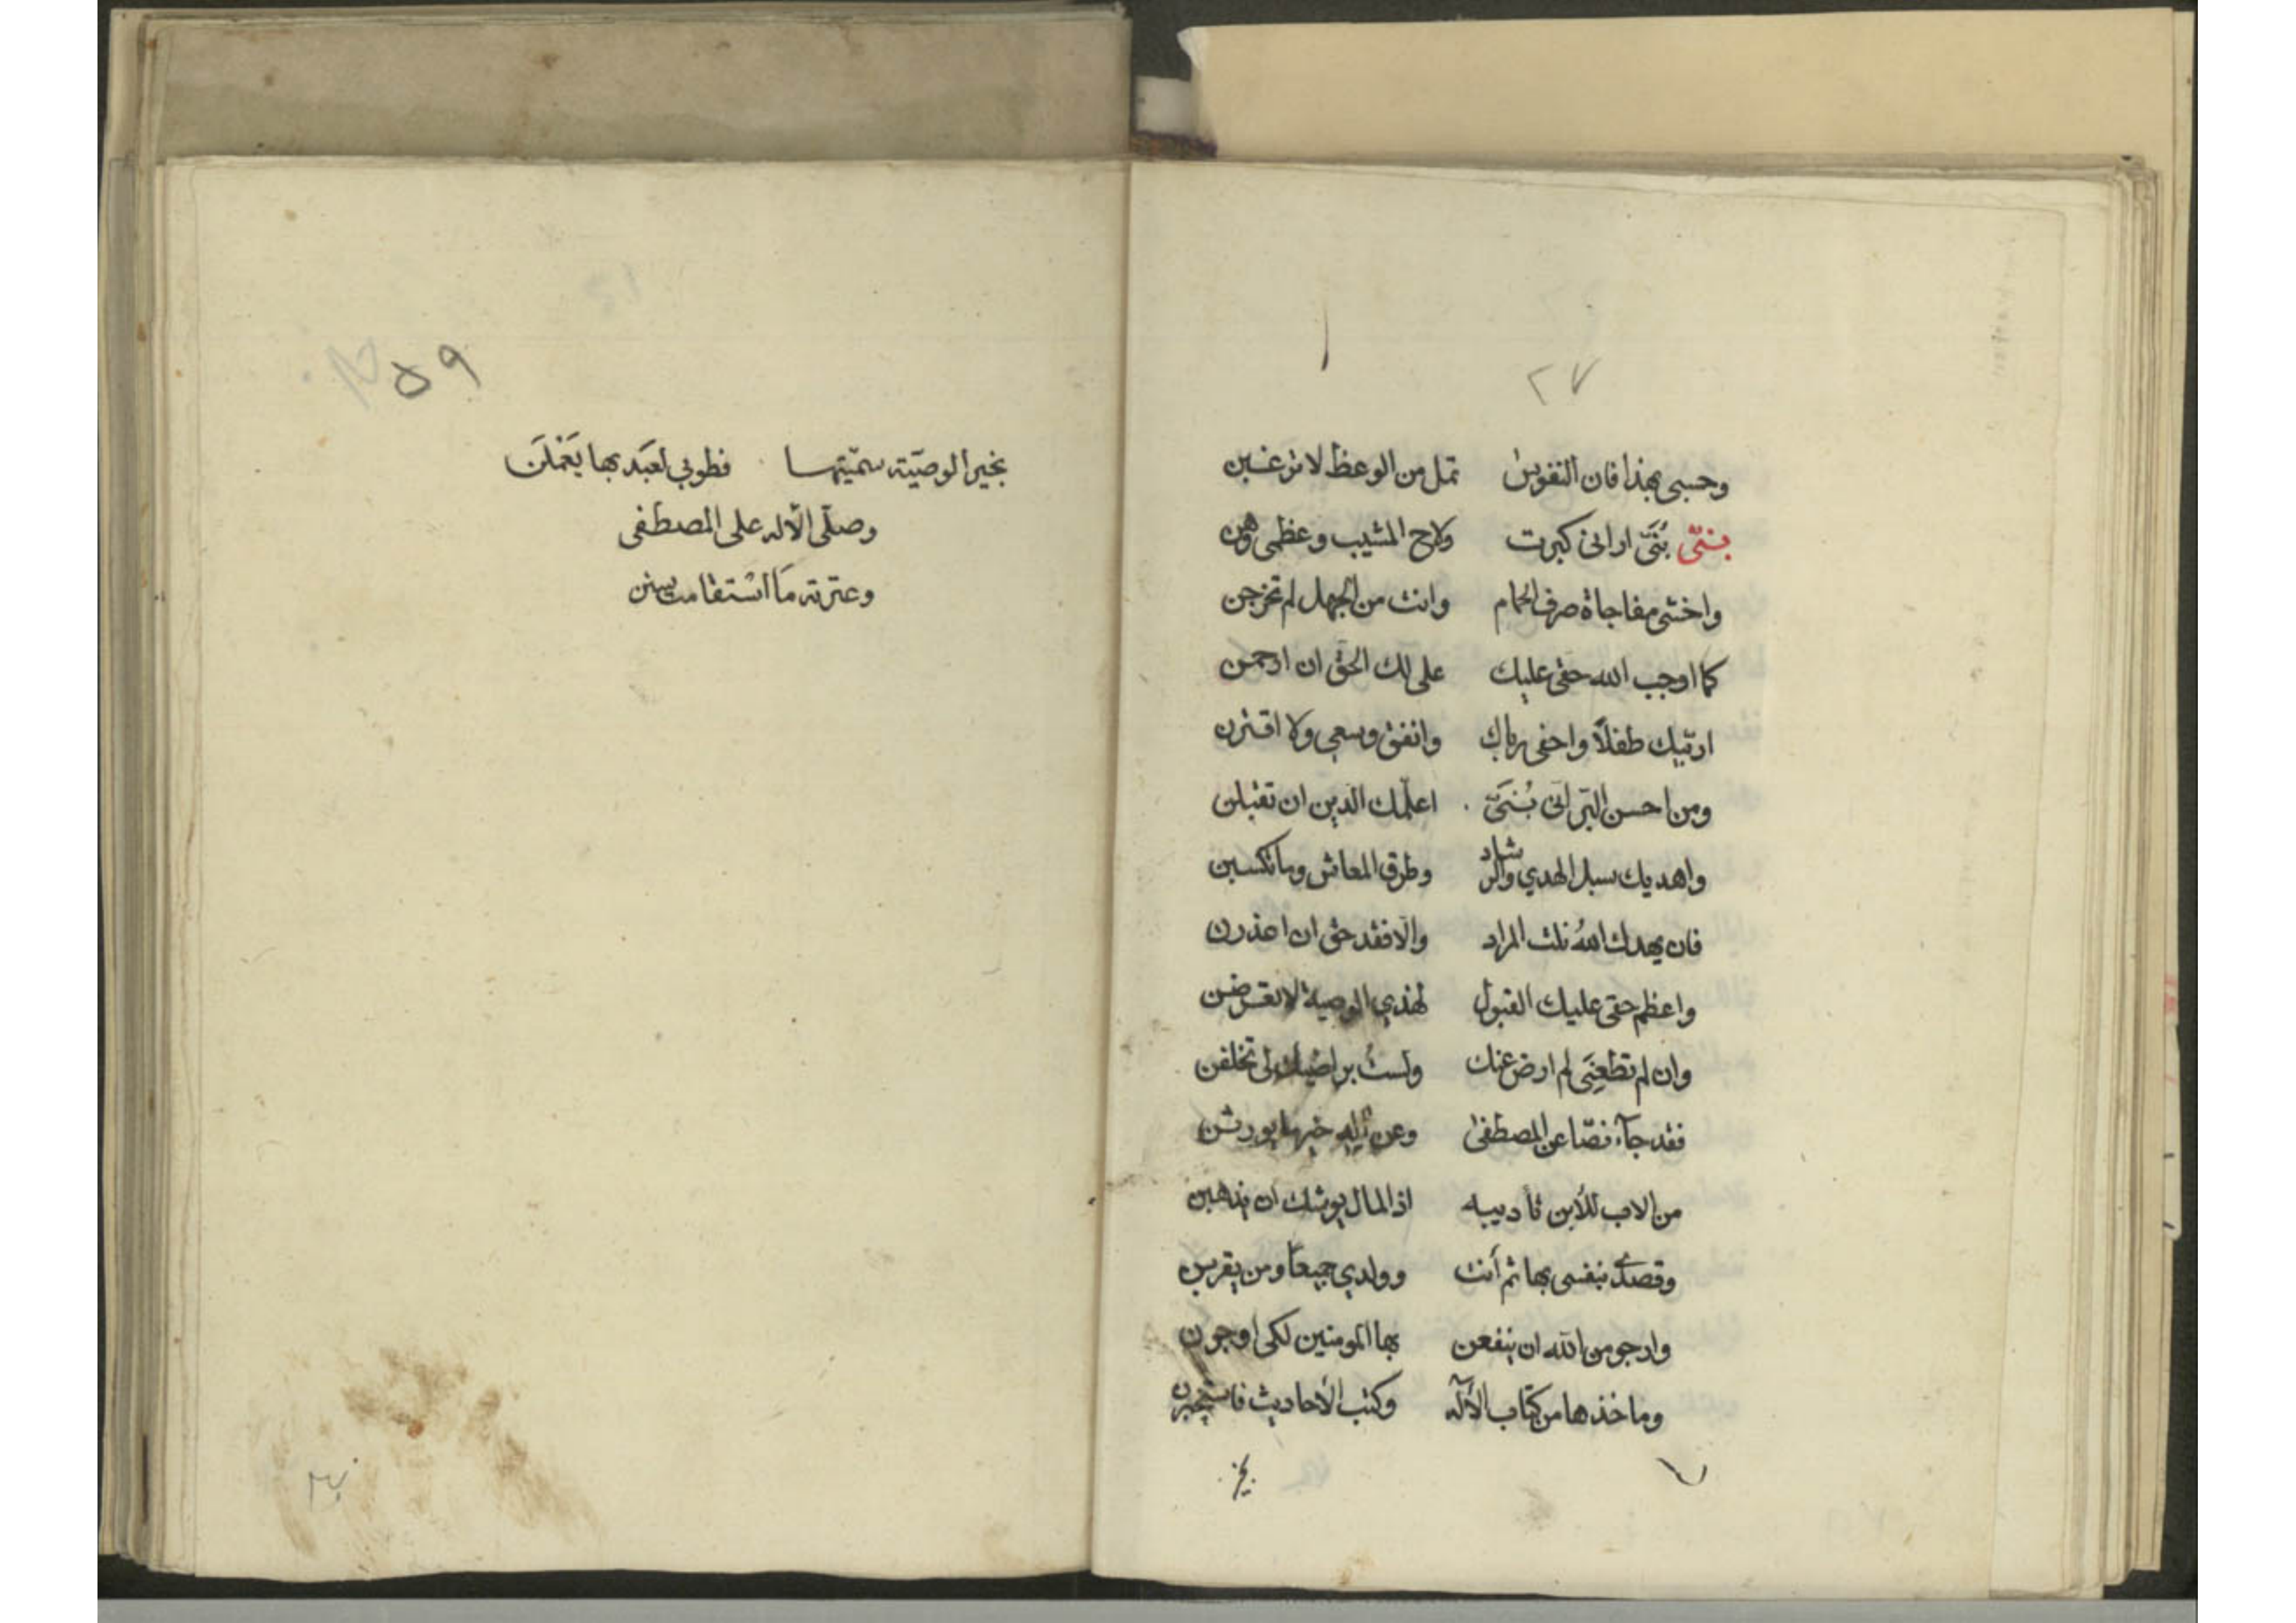 ٢٧
وحسبى بهذا فان النفوس تمل من الوعظ لا ترغبن
بنىّ بُنَىّ ارانى كبرت ولاح المشيب وعظمى وهن
واخشى مفاجاة صرف الحمام وانت من الجهل لم تخرجن
كما اوجب الله حقى عليك على لك الحق ان ارحمن
اربّيك طفلاً واحفى بك وانفق وسعى ولا اقترن
ومن احسن البرّ انّى بُنَىّ اعلّمك الدين ان تقبلن
واهديك سبل الهدي والرشاد وطرق المعاش وما تكسبن
فان يهدك اللهُ نلت المراد والّا فقد حق ان اعذرن
واعظم حقى عليك القبول لهذي الوصية لا تعرضن
وان لم تطعنِى لم ارض عنك ولستُ براضيك لى تخلفن
فقد جآء نصّا عن المصطفى وعن آله خيرما يورثن
من الاب للأبن تأديبه اذ المال يوشك ان يذهبن
وقصدى بنفسى بها ثم أنت وولدي جميعاً ومن يقربن
وارجو من الله ان ينفعن بها المومنين لكى اوجرن
وماخذها من كتاب الاله وكتب الأحاديث فاستخبرن
بخير
٥٩
بخير الوصيّة سمّيتها فطوبى لعبَد بها يَعْمَلَن
وصلّى الاله على المصطفى
وعترته مَا اسْتقامت سنن